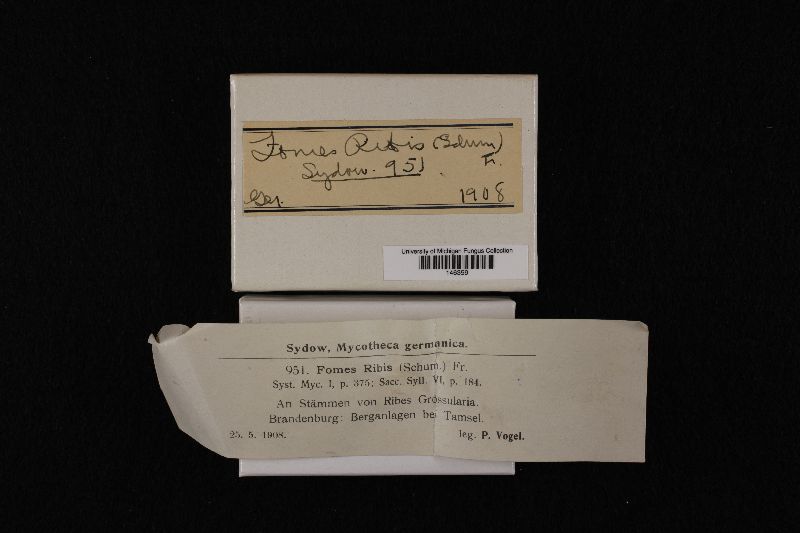 Fomes Ribis (Schum)
Fr.
Sydow. 951.
Ger. 1908
University of Michigan Fungus Collection
146359
Sydow, Mycotheca germanica.
951. Fomes Ribis (Schum.) Fr.
Syst. Myc. I, p. 375; Sacc. Syll. VI, p. 184.
An Stämmen von Ribes Grossularia.
Brandenburg: Berganlagen bei Tamsel.
25. 5. 1908. leg. P. Vogel.